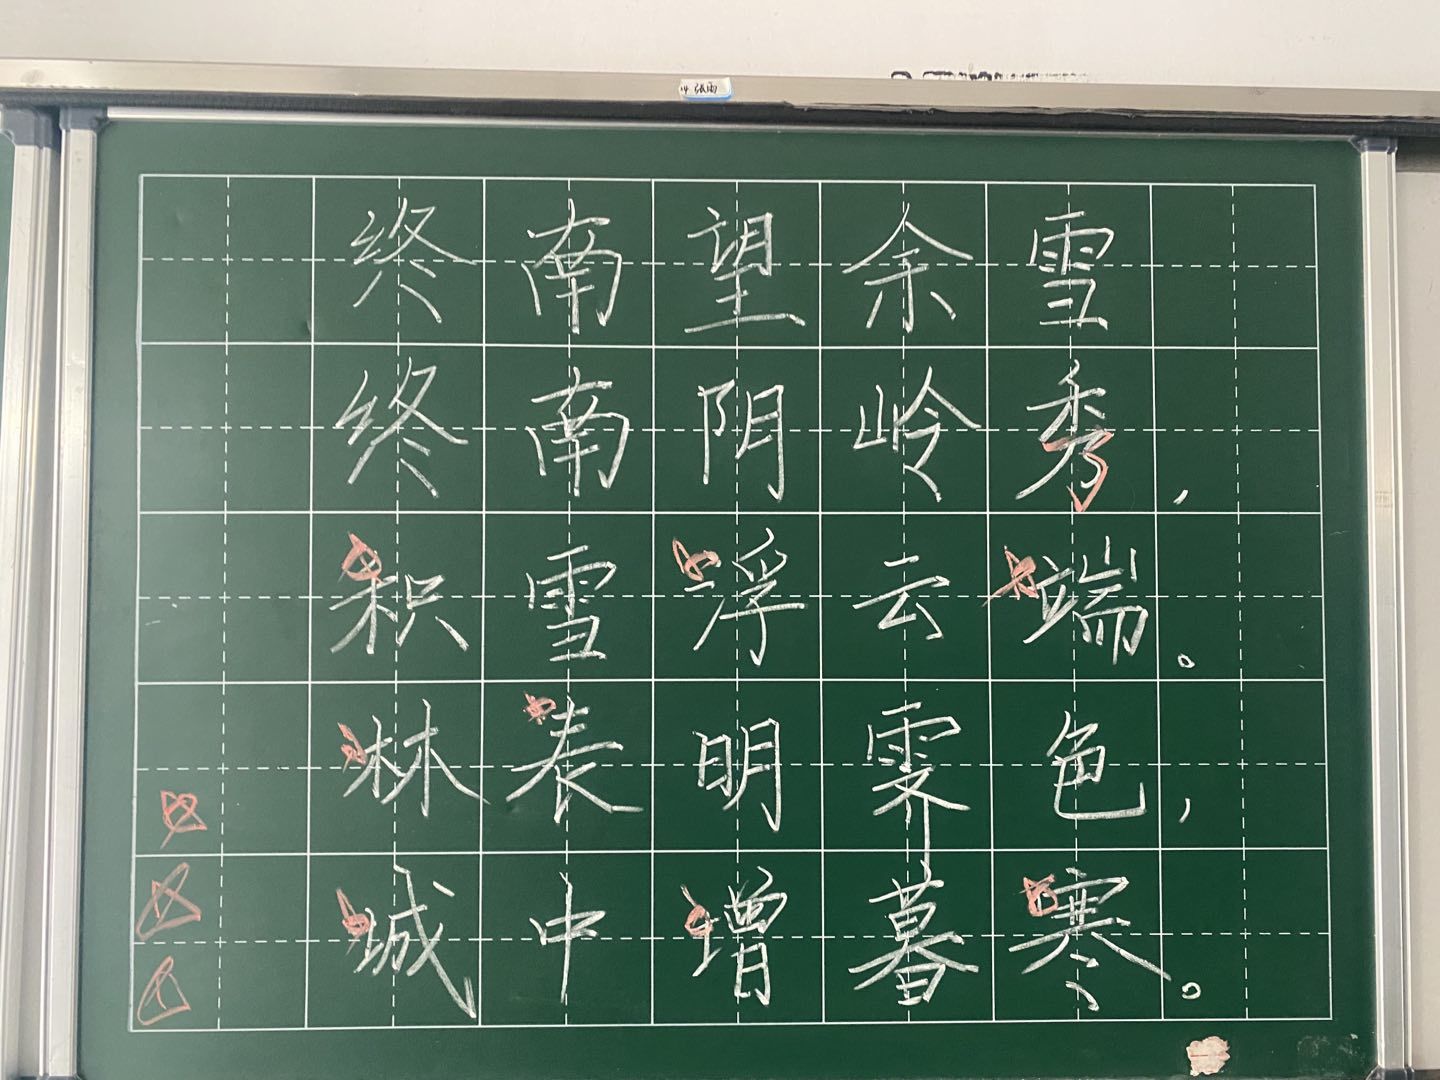 终南望余雪
终南阴岭秀，
积雪浮云端。
林表明霁色，
城中增暮寒。